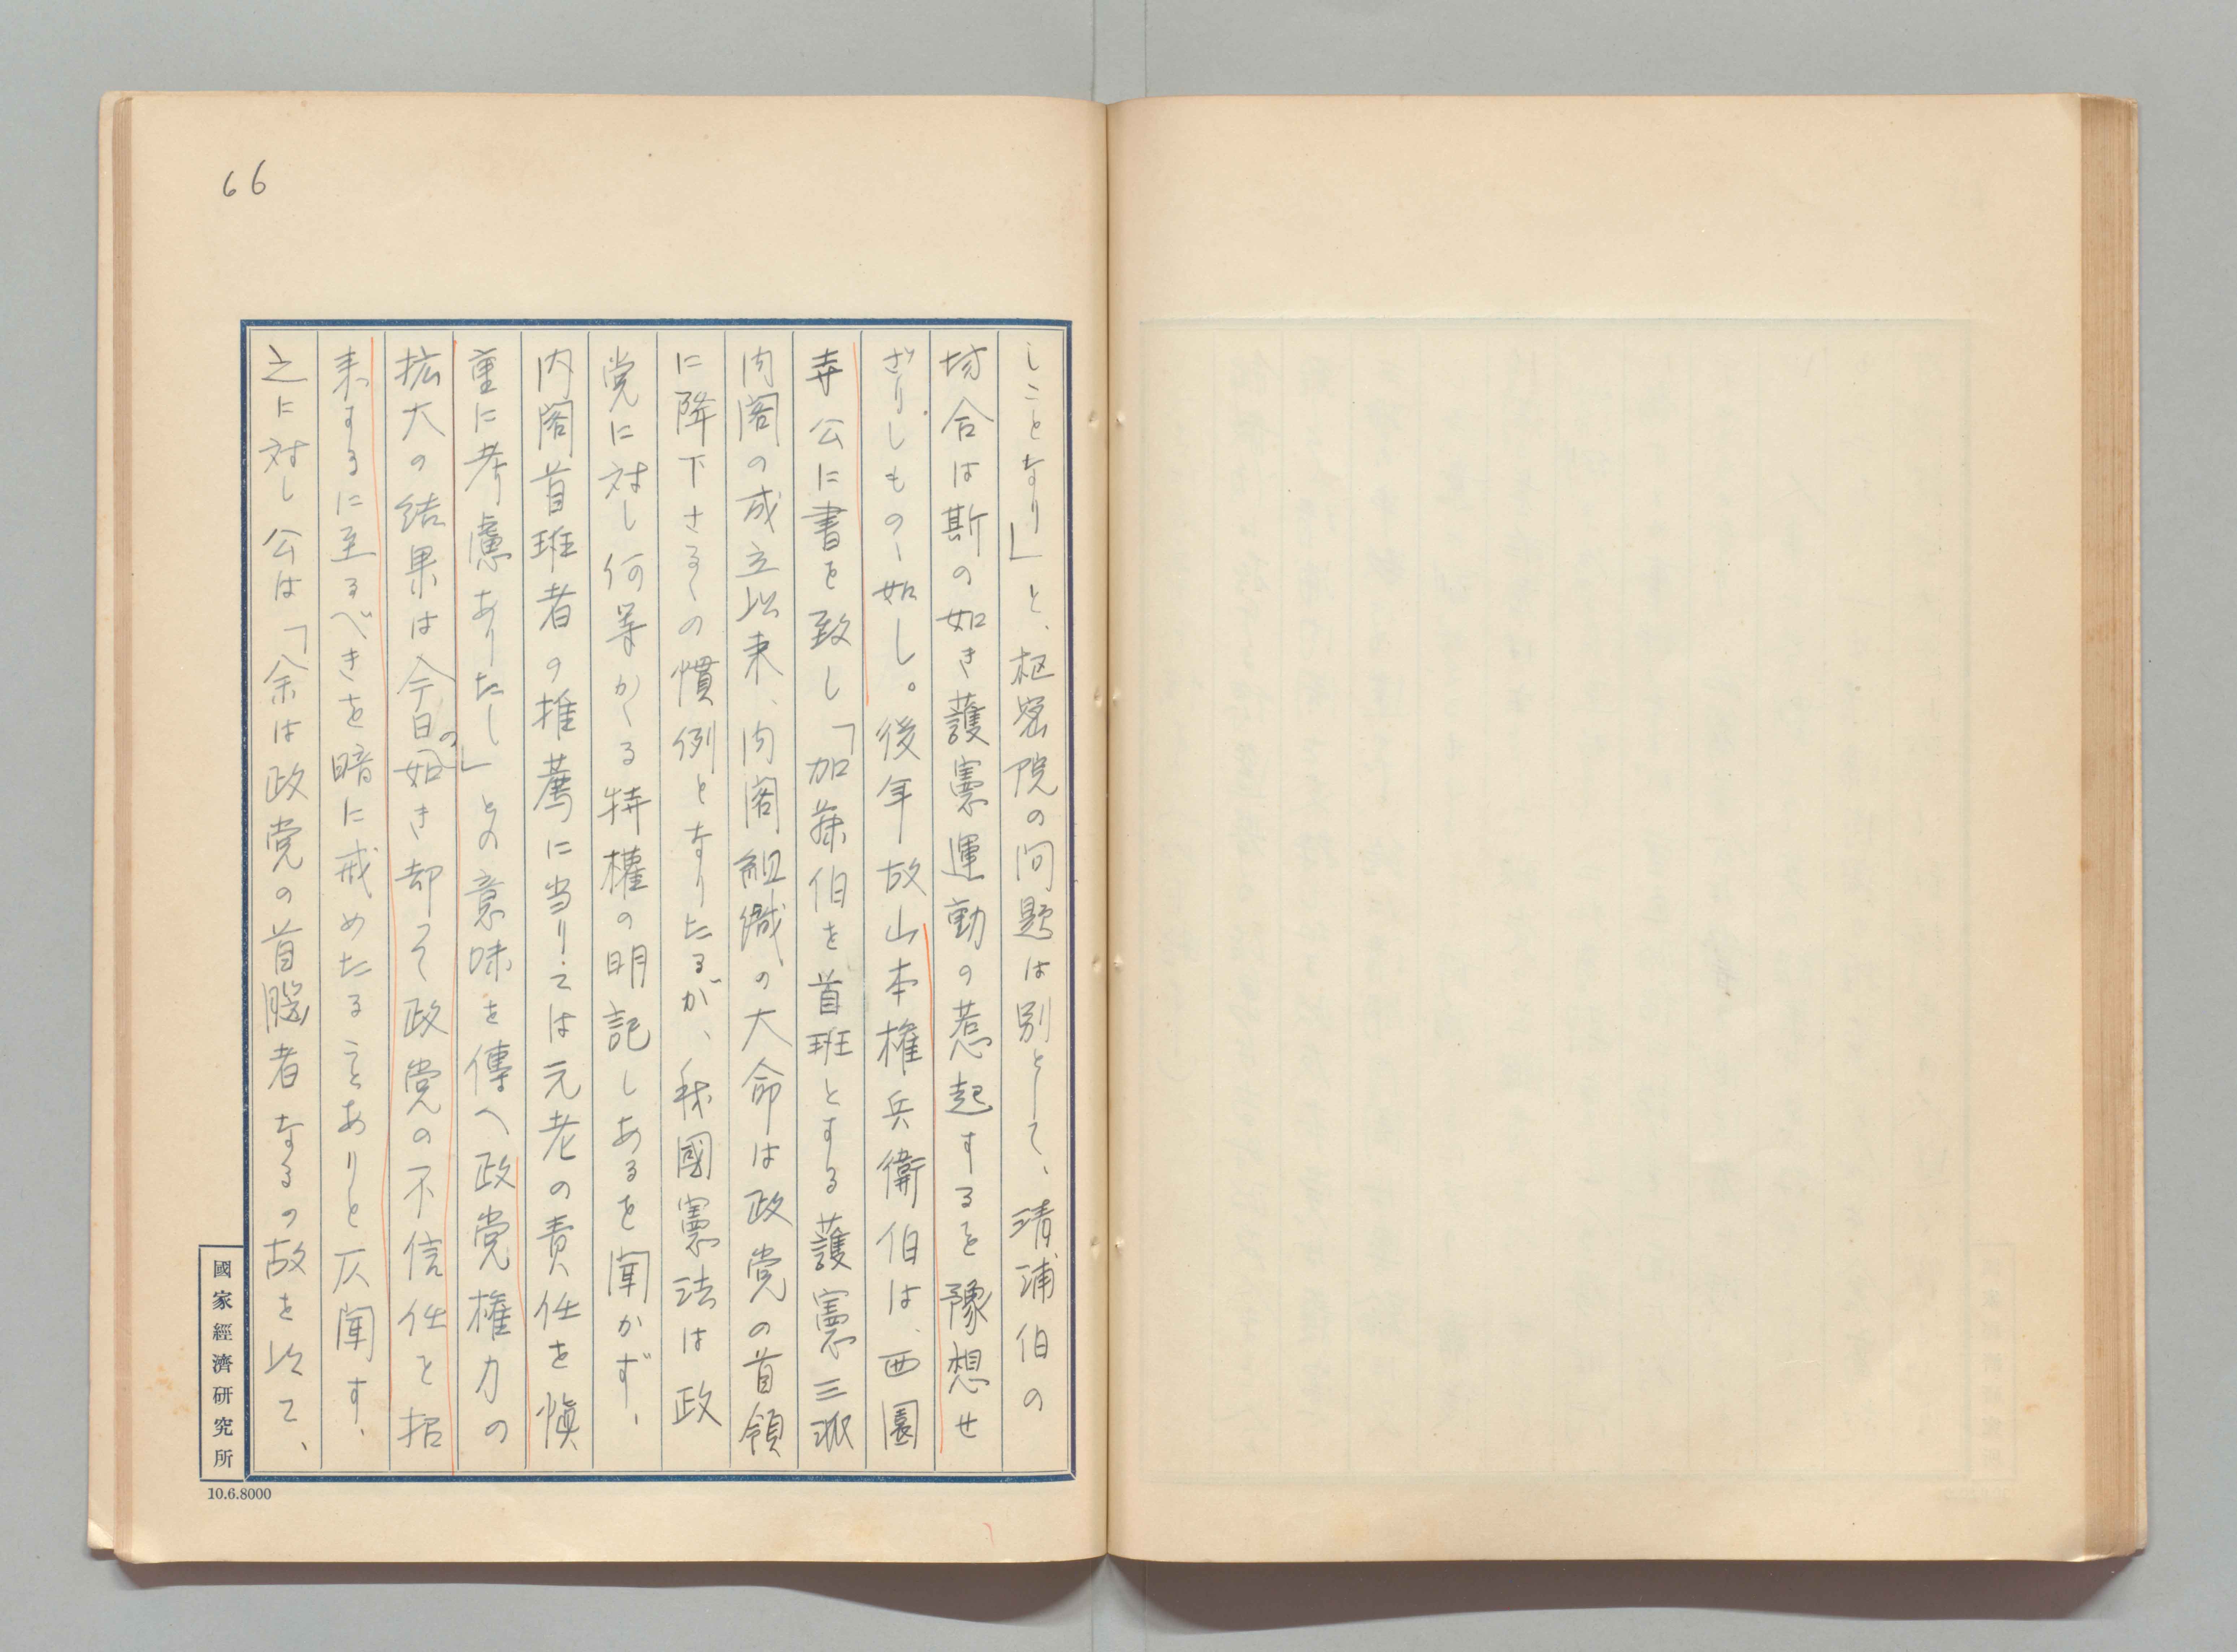 66
しことなり」と、枢密院の問題は別として、清浦伯の
場合は斯の如き護憲運動の惹起するを豫想せ
ざりしものゝ如し。後年故山本権兵衛伯は、西園
寺公に書を致し「加藤伯を首班とする護憲三派
内閣の成立以来、内閣組織の大命は政党の首領
に降下さるゝの慣例となりたるが、我國憲法は政
党に対し何等かくる特權の明記しあるを聞かず、
内閣首班者の推薦に当りては元老の責任を愼
重に考慮ありたし」との意味を傳へ政党権力の
拡大の結果は今日の如き却って政党の不信任を招
来するに至るべきを暗に戒めたることありと仄聞す、
之に対し公は「余は政党の首脳者なるの故を以て、
國家經濟研究所
10.6.8000